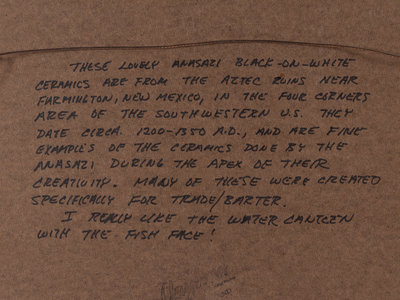 THESE LOVELY ANASAZI BLACK-ON-WHITE
CERAMICS ARE FROM THE AZTEC RUINS NEAR
FARMINGTON, NEW MEXICO, IN THE FOUR CORNERS
AREA OF THE SOUTHWESTERN U.S. THEY
DATE CIRCA. 1200-1350 A.D., AND ARE FINE
EXAMPLES OF THE CERAMICS DONE BY THE
ANASAZI DURING THE APEX OF THEIR
CREATIVITY. MANY OF THESE WERE CREATED
SPECIFICALLY FOR TRADE/BARTER.
I REALLY LIKE THE WATER CANTEEN
WITH THE FISH FACE!